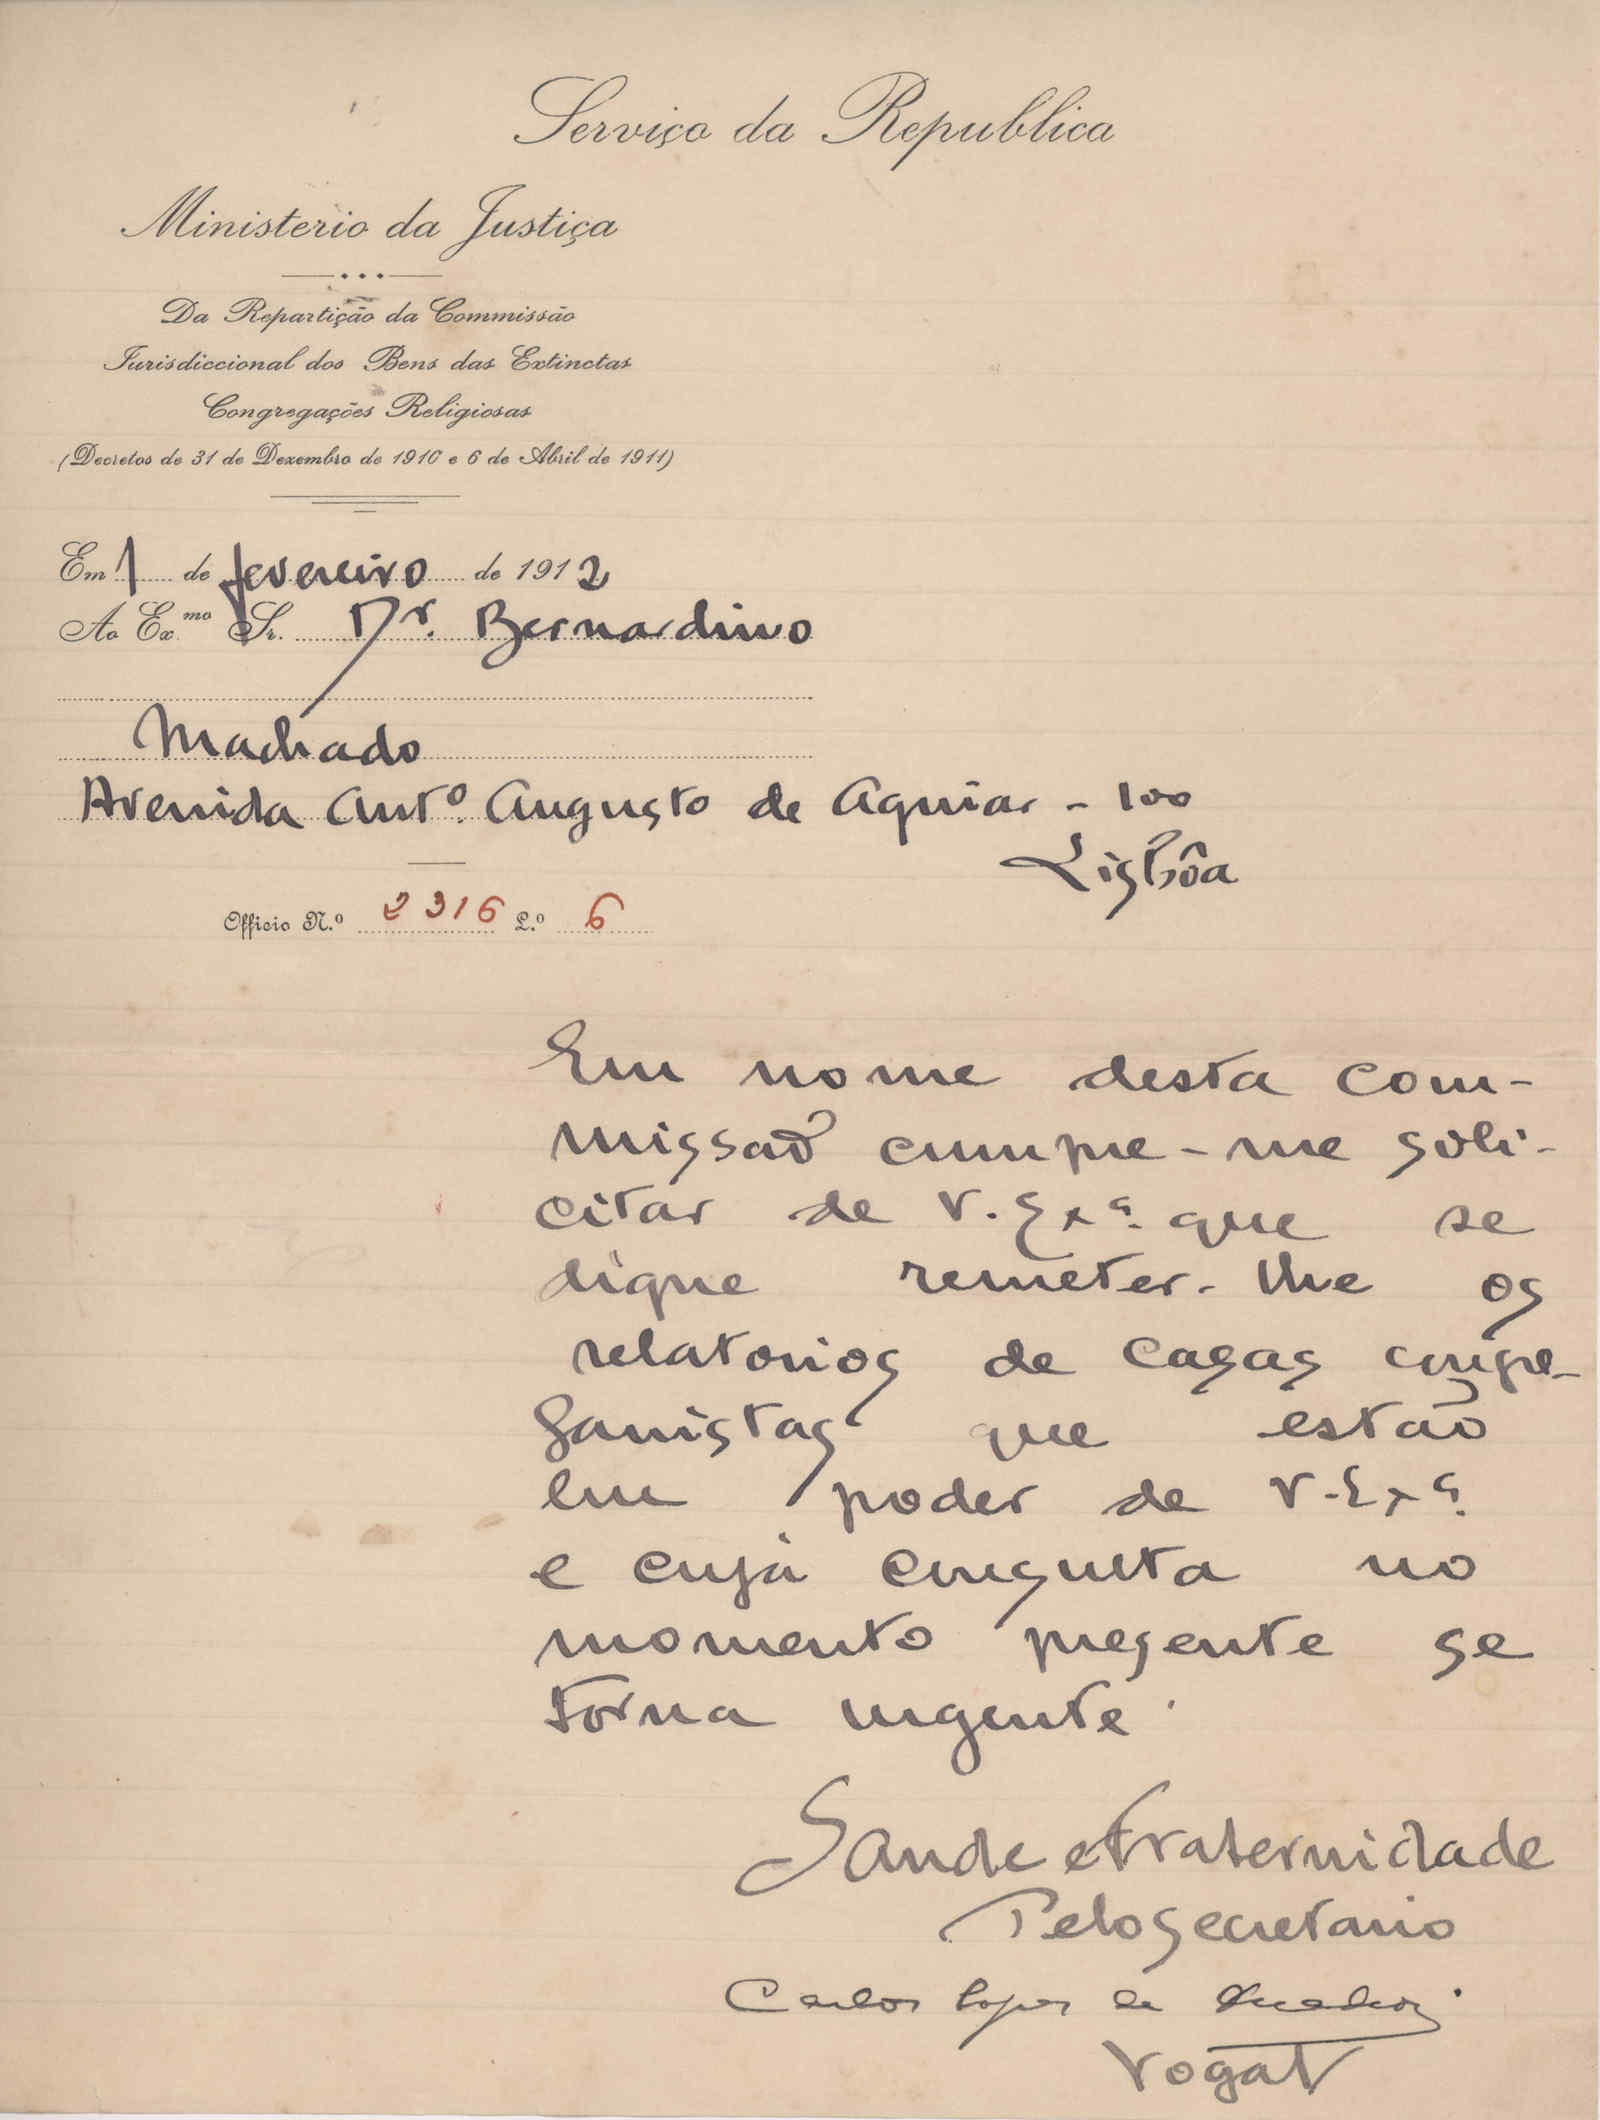 Serviço da Republica
Ministerio da Justiça
Da Repartição da Commissão
Jurisdiccional dos Bens das Extinctas
Congregações Religiosas
(Decretos de 31 de Dezembro de 1910 e 6 de Abril de 1911)
Em 1 de fevereiro de 1912
Ao Ex.mo Sr. Dr. Bernardino
Machado
Avenida Antº. Augusto de Aguiar - 100
Lisbôa
Officio N.º 2316 L.º 6
Em nome desta com-
missaõ cumpre-me soli-
citar de V. Exª. que se
digne remeter-lhe os
relatorios de casas congre-
ganistas que estão
em poder de V. Exª.
e cuja consulta no
momento presente se
torna urgente.
Saude e Fraternidade
Pelo Secretario
Carlos Lopes de
Vogal